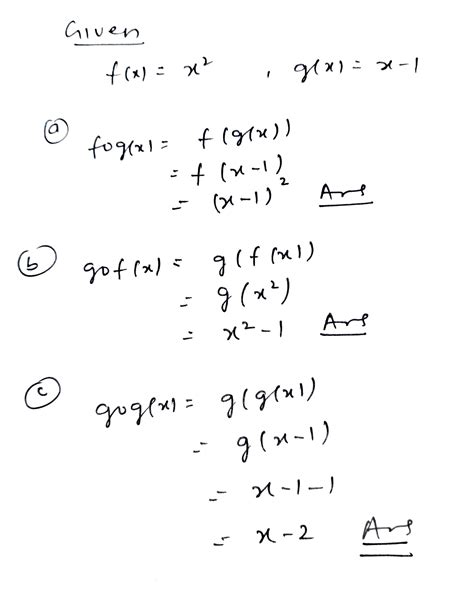 Given
f(x) = x² , g(x) = x-1
(a) fog(x) = f(g(x))
= f(x-1)
= (x-1)² Ans
(b) gof(x) = g(f(x))
= g(x²)
= x²-1 Ans
(c) gog(x) = g(g(x))
= g(x-1)
= x-1-1
= x-2 Ans